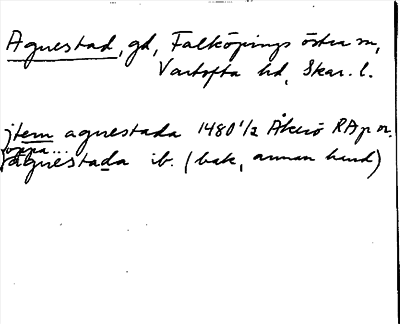 Agnestad, gd, Falköpings östra sn,
Vartofta hd, Skar. l.
jtem agnestada 1480 1/2 Åkerö RAp or.
agnestada ib. (bak, annan hand)